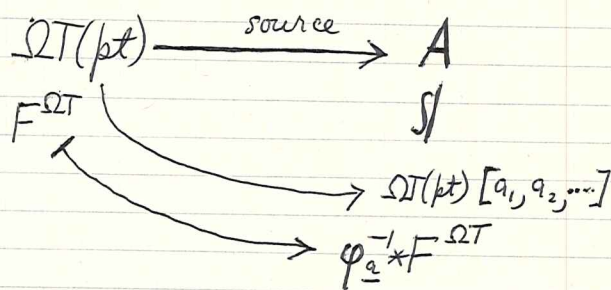 ΩT(pt) source A
S/
F^{ΩT}
ΩT(pt) [a_1, a_2, ....]
φ_{\underline{a}}^{-1} * F^{ΩT}